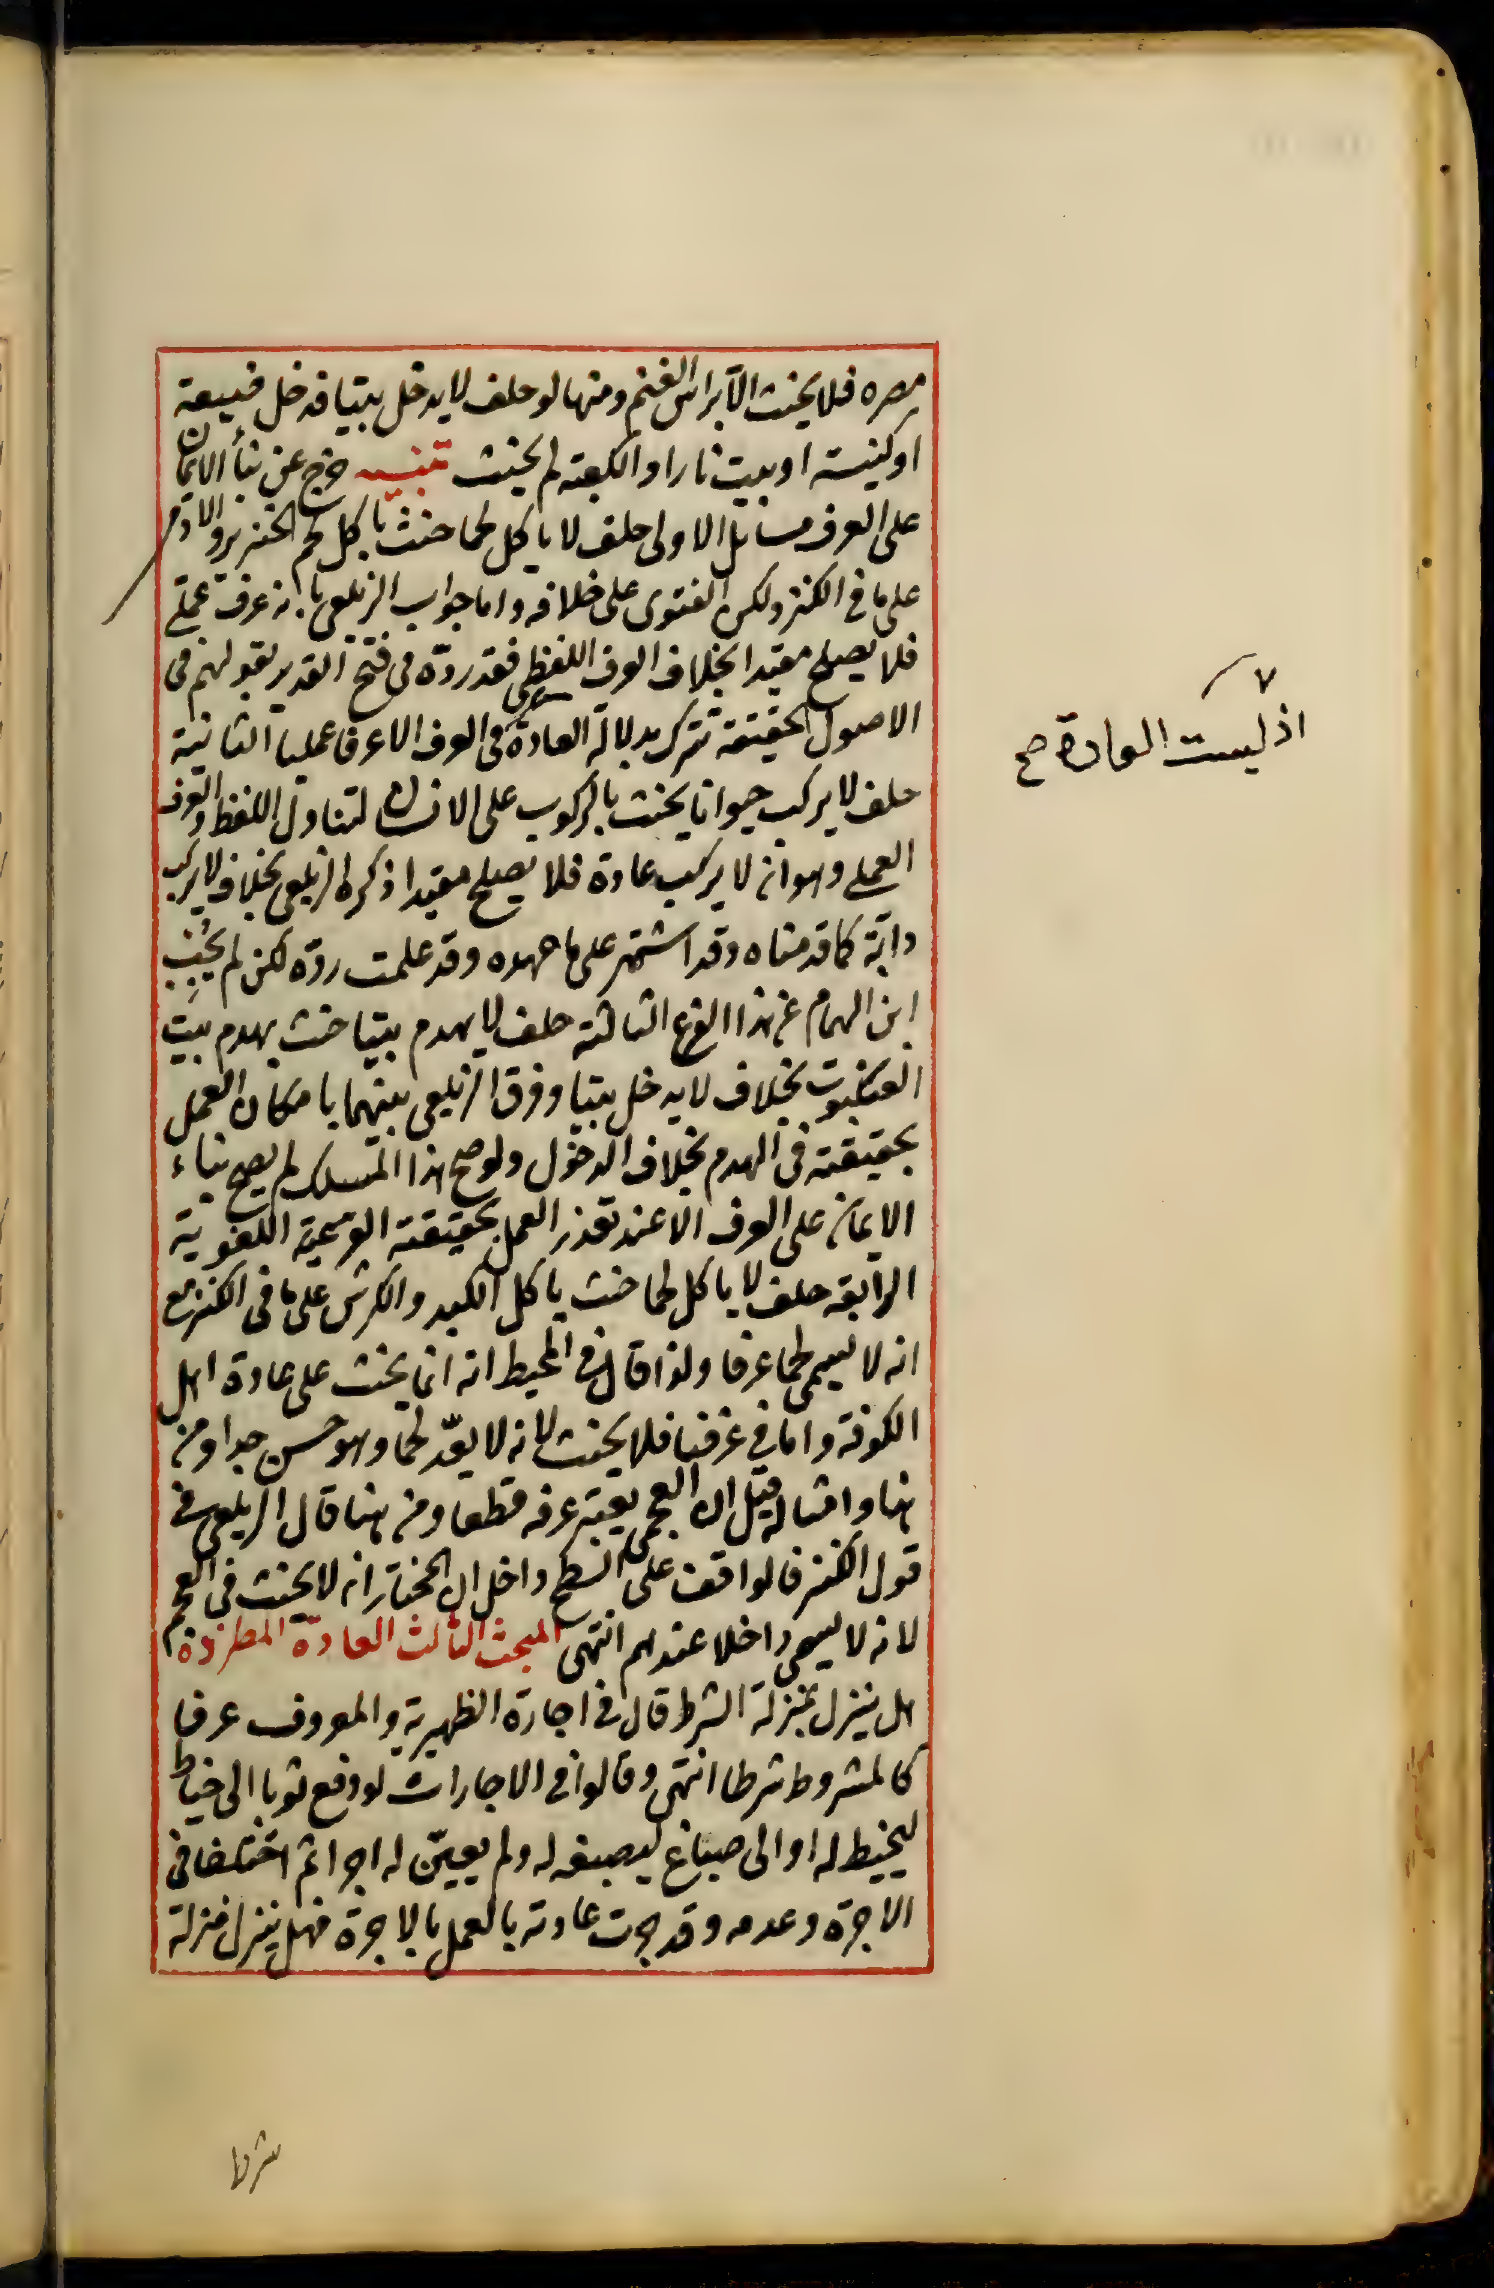 مصره فلا يحنث الا براس الغنم ومنها لو حلف لا يدخل بيتا فدخل فبيعة
او كنيسة او بيت نار او الكعبة لم يحنث تنبيه خرج عن بناء الايمان
على العرف مسائل الاولى حلف لا ياكل لحما حنث باكل لحم الخنزير والادمى
على ما فى الكنز ولكن الفتوى على خلافه واما جواب الزيلعى بانه عرف عملى
فلا يصلح مقيدا بخلاف العرف اللفظى فقد ردّه فى فتح القدير بقولهم فى
الاصول الحقيقة تترك بدلالة العادة فى العرف الا عرفا عمليا الثانية
حلف لا يركب حيوانا يحنث بالركوب على الانسان لتناول اللفظ والعرف
العملى وهو انه لا يركب عادة فلا يصلح مقيدا ذكره الزيلعى بخلاف لا يركب
دابّة كما قدمناه وقد استمر على ما مهده وقد علمت ردّه لكن لم يُجِب
ابن الهمام عن هذا الفرع الثالثة حلف لا يهدم بيتا حنث بهدم بيت
العنكبوت بخلاف لا يدخل بيتا وفرق الزيلعى بينهما بامكان العمل
بحقيقته فى الهدم بخلاف الدخول ولو صح هذا المسلك لم يصح بناء
الايمان على العرف الا عند تعذر العمل بحقيقته اللغوية
الرابعة حلف لا ياكل لحما حنث باكل الكبد والكرش على ما فى الكنز مع
انه لا يسمى لحما عرفا ولذا قال فى المحيط انه انما يحنث على عادة اهل
الكوفة واما فى عرفنا فلا يحنث لانه لا يعدّ لحما وهو حسن جدا ومن
هنا وامثاله قيل ان العجمى يعتبر عرفه قطعا ومن هنا قال الزيلعى فى
قول الكنز فالواقف على السطح داخل ان المختار انه لا يحنث فى العجم
لانه لا يسمى داخلا عندهم انتهى المبحث الثالث العادة المطردة
هل ينزل بمنزلة الشرط قال فى اجارة الظهيرية والمعروف عرفا
كالمشروط شرطا انتهى وقالوا فى الاجارات لو دفع ثوبا الى خياط
ليخيطه له او الى صباغ ليصبغه له ولم يعيّن له اجرا ثم اختلفا فى
الاجرة وعدمه وقد جرت عادته بالعمل بالاجرة فهل ينزل منزلة
٧
اذ ليست العادة صح
شرط